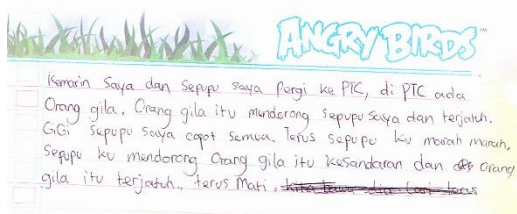 ANGRY BIRDS™
Kemarin Saya dan Sepupu saya Pergi ke PTC, di PTC ada
Orang gila, Orang gila itu mundorong sepupu saya dan terjatuh.
GiGi Sepupu saya copot semua. Terus sepupu ku marah marah,
Sepupu ku mendorong Orang gila itu kesandaran dan orang
gila itu terjatuh, terus Mati,